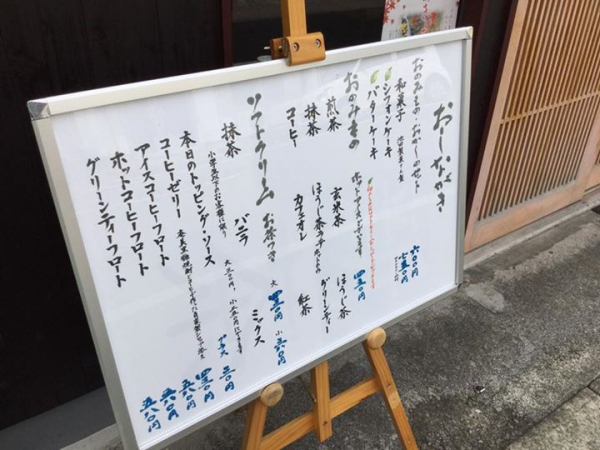 おしながき
おのみもの・おかしのセット
和菓子 六〇〇円
シフォンケーキ 七五〇円
バターケーキ
おのみもの ホット アイス 四五〇円
煎茶 玄米茶 ほうじ茶
抹茶 ほうじ茶ラテ グリンティー
コーヒー カフェオレ 紅茶
ソフトクリーム お茶つき 大 四五〇円 小 三六〇円
抹茶 バニラ ミックス
本日のトッピングソース プラス 三〇円
コーヒーゼリー 四五〇円
アイスコーヒーフロート 五六〇円
ホットコーヒーフロート 五六〇円
グリーンティーフロート 五六〇円